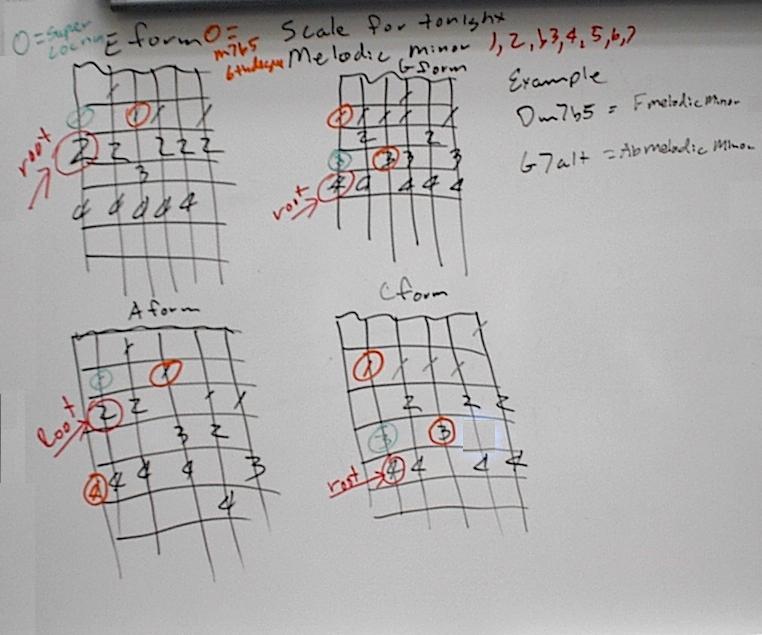 O = Super Locrian
E form
O = m7b5 6th degree
Scale for tonight
Melodic minor 1, 2, b3, 4, 5, 6, 7
G form
Example
Dm7b5 = F melodic minor
G7alt = Ab melodic minor
1
1 1 1
root 2 2 2 2 2
3
4 4 4 4 4
1
1 1 1 1 1
2 2
3 3 3 3
root 4 4 4 4 4
A form
1
1 1
Root 2 2 1 1
3 2
4 4 4 4 3
4
C form
1
1 1 1 1
2 2 2
3 3
root 4 4 4 4